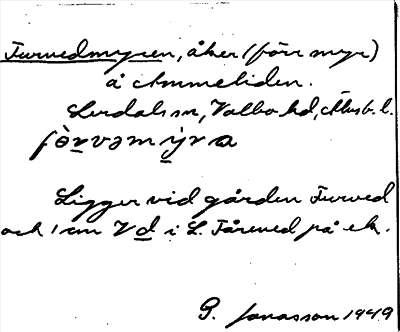 Furvedmyren, åker (förr myr)
å Ammeliden.
Lerdals sn, Valbo hd, Älvsb. l.
Ligger vid gården Furved
och 1 cm V d i L. Fårved på ek.
G. Jonasson 1949